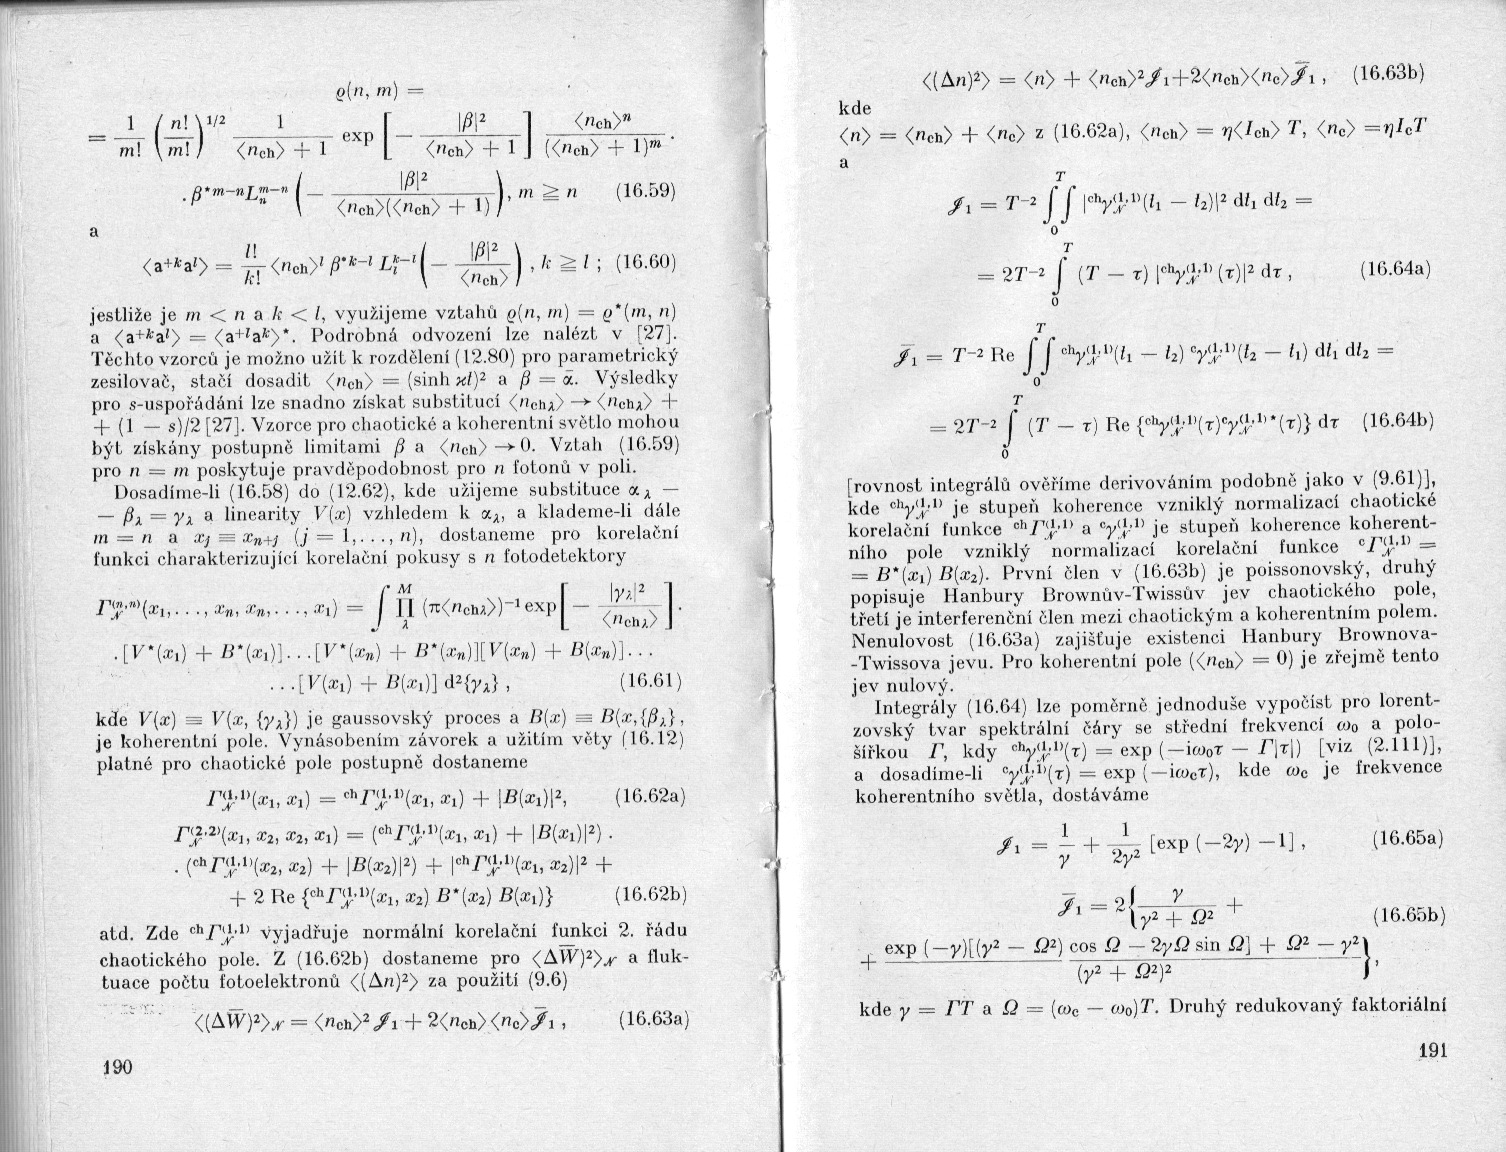 ϱ(n, m) =
= 1/m! (n!/m!)^{1/2} 1/(⟨n_ch⟩ + 1) exp [− |β|²/(⟨n_ch⟩ + 1)] ⟨n_ch⟩ⁿ/(⟨n_ch⟩ + 1)^m .
. β*^{m−n} L_n^{m−n} (− |β|²/(⟨n_ch⟩(⟨n_ch⟩ + 1))), m ≧ n (16.59)
a
⟨a^{+k}a^l⟩ = l!/k! ⟨n_ch⟩^l β*^{k−l} L_l^{k−l} (− |β|²/⟨n_ch⟩), k ≧ l ; (16.60)
jestliže je m < n a k < l, využijeme vztahů ϱ(n, m) = ϱ*(m, n)
a ⟨a^{+k}a^l⟩ = ⟨a^{+l}a^k⟩*. Podrobná odvození lze nalézt v [27].
Těchto vzorců je možno užít k rozdělení (12.80) pro parametrický
zesilovač, stačí dosadit ⟨n_ch⟩ = (sinh ϰt)² a β = ᾱ. Výsledky
pro s-uspořádání lze snadno získat substitucí ⟨n_chλ⟩ → ⟨n_chλ⟩ +
+ (1 — s)/2 [27]. Vzorce pro chaotické a koherentní světlo mohou
být získány postupně limitami β a ⟨n_ch⟩ → 0. Vztah (16.59)
pro n = m poskytuje pravděpodobnost pro n fotonů v poli.
Dosadíme-li (16.58) do (12.62), kde užijeme substituce α_λ —
— β_λ = γ_λ a linearity V(x) vzhledem k α_λ, a klademe-li dále
m = n a x_j ≡ x_{n+j} (j = 1,..., n), dostaneme pro korelační
funkci charakterizující korelační pokusy s n fotodetektory
Γ_𝒩^{(n,n)}(x₁,..., x_n, x_n,..., x₁) = ∫ ∏_λ^M (π⟨n_chλ⟩)⁻¹ exp [− |γ_λ|²/⟨n_chλ⟩] .
. [V*(x₁) + B*(x₁)]...[V*(x_n) + B*(x_n)][V(x_n) + B(x_n)]...
...[V(x₁) + B(x₁)] d²{γ_λ} , (16.61)
kde V(x) ≡ V(x, {γ_λ}) je gaussovský proces a B(x) ≡ B(x,{β_λ},
je koherentní pole. Vynásobením závorek a užitím věty (16.12)
platné pro chaotické pole postupně dostaneme
Γ_𝒩^{(1,1)}(x₁, x₁) = ^{ch}Γ_𝒩^{(1,1)}(x₁, x₁) + |B(x₁)|², (16.62a)
Γ_𝒩^{(2,2)}(x₁, x₂, x₂, x₁) = (^{ch}Γ_𝒩^{(1,1)}(x₁, x₁) + |B(x₁)|²) .
. (^{ch}Γ_𝒩^{(1,1)}(x₂, x₂) + |B(x₂)|²) + |^{ch}Γ_𝒩^{(1,1)}(x₁, x₂)|² +
+ 2 Re {^{ch}Γ_𝒩^{(1,1)}(x₁, x₂) B*(x₂) B(x₁)} (16.62b)
atd. Zde ^{ch}Γ_𝒩^{(1,1)} vyjadřuje normální korelační funkci 2. řádu
chaotického pole. Z (16.62b) dostaneme pro ⟨(ΔW̅)²⟩_𝒩 a fluk-
tuace počtu fotoelektronů ⟨(Δn)²⟩ za použití (9.6)
⟨(ΔW̅)²⟩_𝒩 = ⟨n_ch⟩² 𝒥₁ + 2⟨n_ch⟩⟨n_c⟩𝒥̅₁ , (16.63a)
190
⟨(Δn)²⟩ = ⟨n⟩ + ⟨n_ch⟩²𝒥₁+2⟨n_ch⟩⟨n_c⟩𝒥̅₁ , (16.63b)
kde
⟨n⟩ = ⟨n_ch⟩ + ⟨n_c⟩ z (16.62a), ⟨n_ch⟩ = η⟨I_ch⟩ T, ⟨n_c⟩ =ηI_cT
a
𝒥₁ = T⁻² ∫∫₀^T |^{ch}γ_𝒩^{(1,1)}(t₁ — t₂)|² dt₁ dt₂ =
= 2T⁻² ∫₀^T (T — τ) |^{ch}γ_𝒩^{(1,1)} (τ)|² dτ , (16.64a)
𝒥̅₁ = T⁻² Re ∫∫₀^T ^{ch}γ_𝒩^{(1,1)}(t₁ — t₂) ^{c}γ_𝒩^{(1,1)}(t₂ — t₁) dt₁ dt₂ =
= 2T⁻² ∫₀^T (T — τ) Re {^{ch}γ_𝒩^{(1,1)}(τ)^{c}γ_𝒩^{(1,1)*}(τ)} dτ (16.64b)
[rovnost integrálů ověříme derivováním podobně jako v (9.61)],
kde ^{ch}γ_𝒩^{(1,1)} je stupeň koherence vzniklý normalizací chaotické
korelační funkce ^{ch}Γ_𝒩^{(1,1)} a ^{c}γ_𝒩^{(1,1)} je stupeň koherence koherent-
ního pole vzniklý normalizací korelační funkce ^{c}Γ_𝒩^{(1,1)} =
= B*(x₁) B(x₂). První člen v (16.63b) je poissonovský, druhý
popisuje Hanbury Brownův-Twissův jev chaotického pole,
třetí je interferenční člen mezi chaotickým a koherentním polem.
Nenulovost (16.63a) zajišťuje existenci Hanbury Brownova-
-Twissova jevu. Pro koherentní pole (⟨n_ch⟩ = 0) je zřejmě tento
jev nulový.
Integrály (16.64) lze poměrně jednoduše vypočíst pro lorent-
zovský tvar spektrální čáry se střední frekvencí ω₀ a polo-
šířkou Γ, kdy ^{ch}γ_𝒩^{(1,1)}(τ) = exp (—iω₀τ — Γ|τ|) [viz (2.111)],
a dosadíme-li ^{c}γ_𝒩^{(1,1)}(τ) = exp (—iω_cτ), kde ω_c je frekvence
koherentního světla, dostáváme
𝒥₁ = 1/γ + 1/2γ² [exp (—2γ) —1] , (16.65a)
𝒥̅₁ = 2{γ/(γ² + Ω²) + (16.65b)
+ exp (—γ)[(γ² — Ω²) cos Ω — 2γΩ sin Ω] + Ω² — γ²/(γ² + Ω²)²},
kde γ = ΓT a Ω = (ω_c — ω₀)T. Druhý redukovaný faktoriální
191